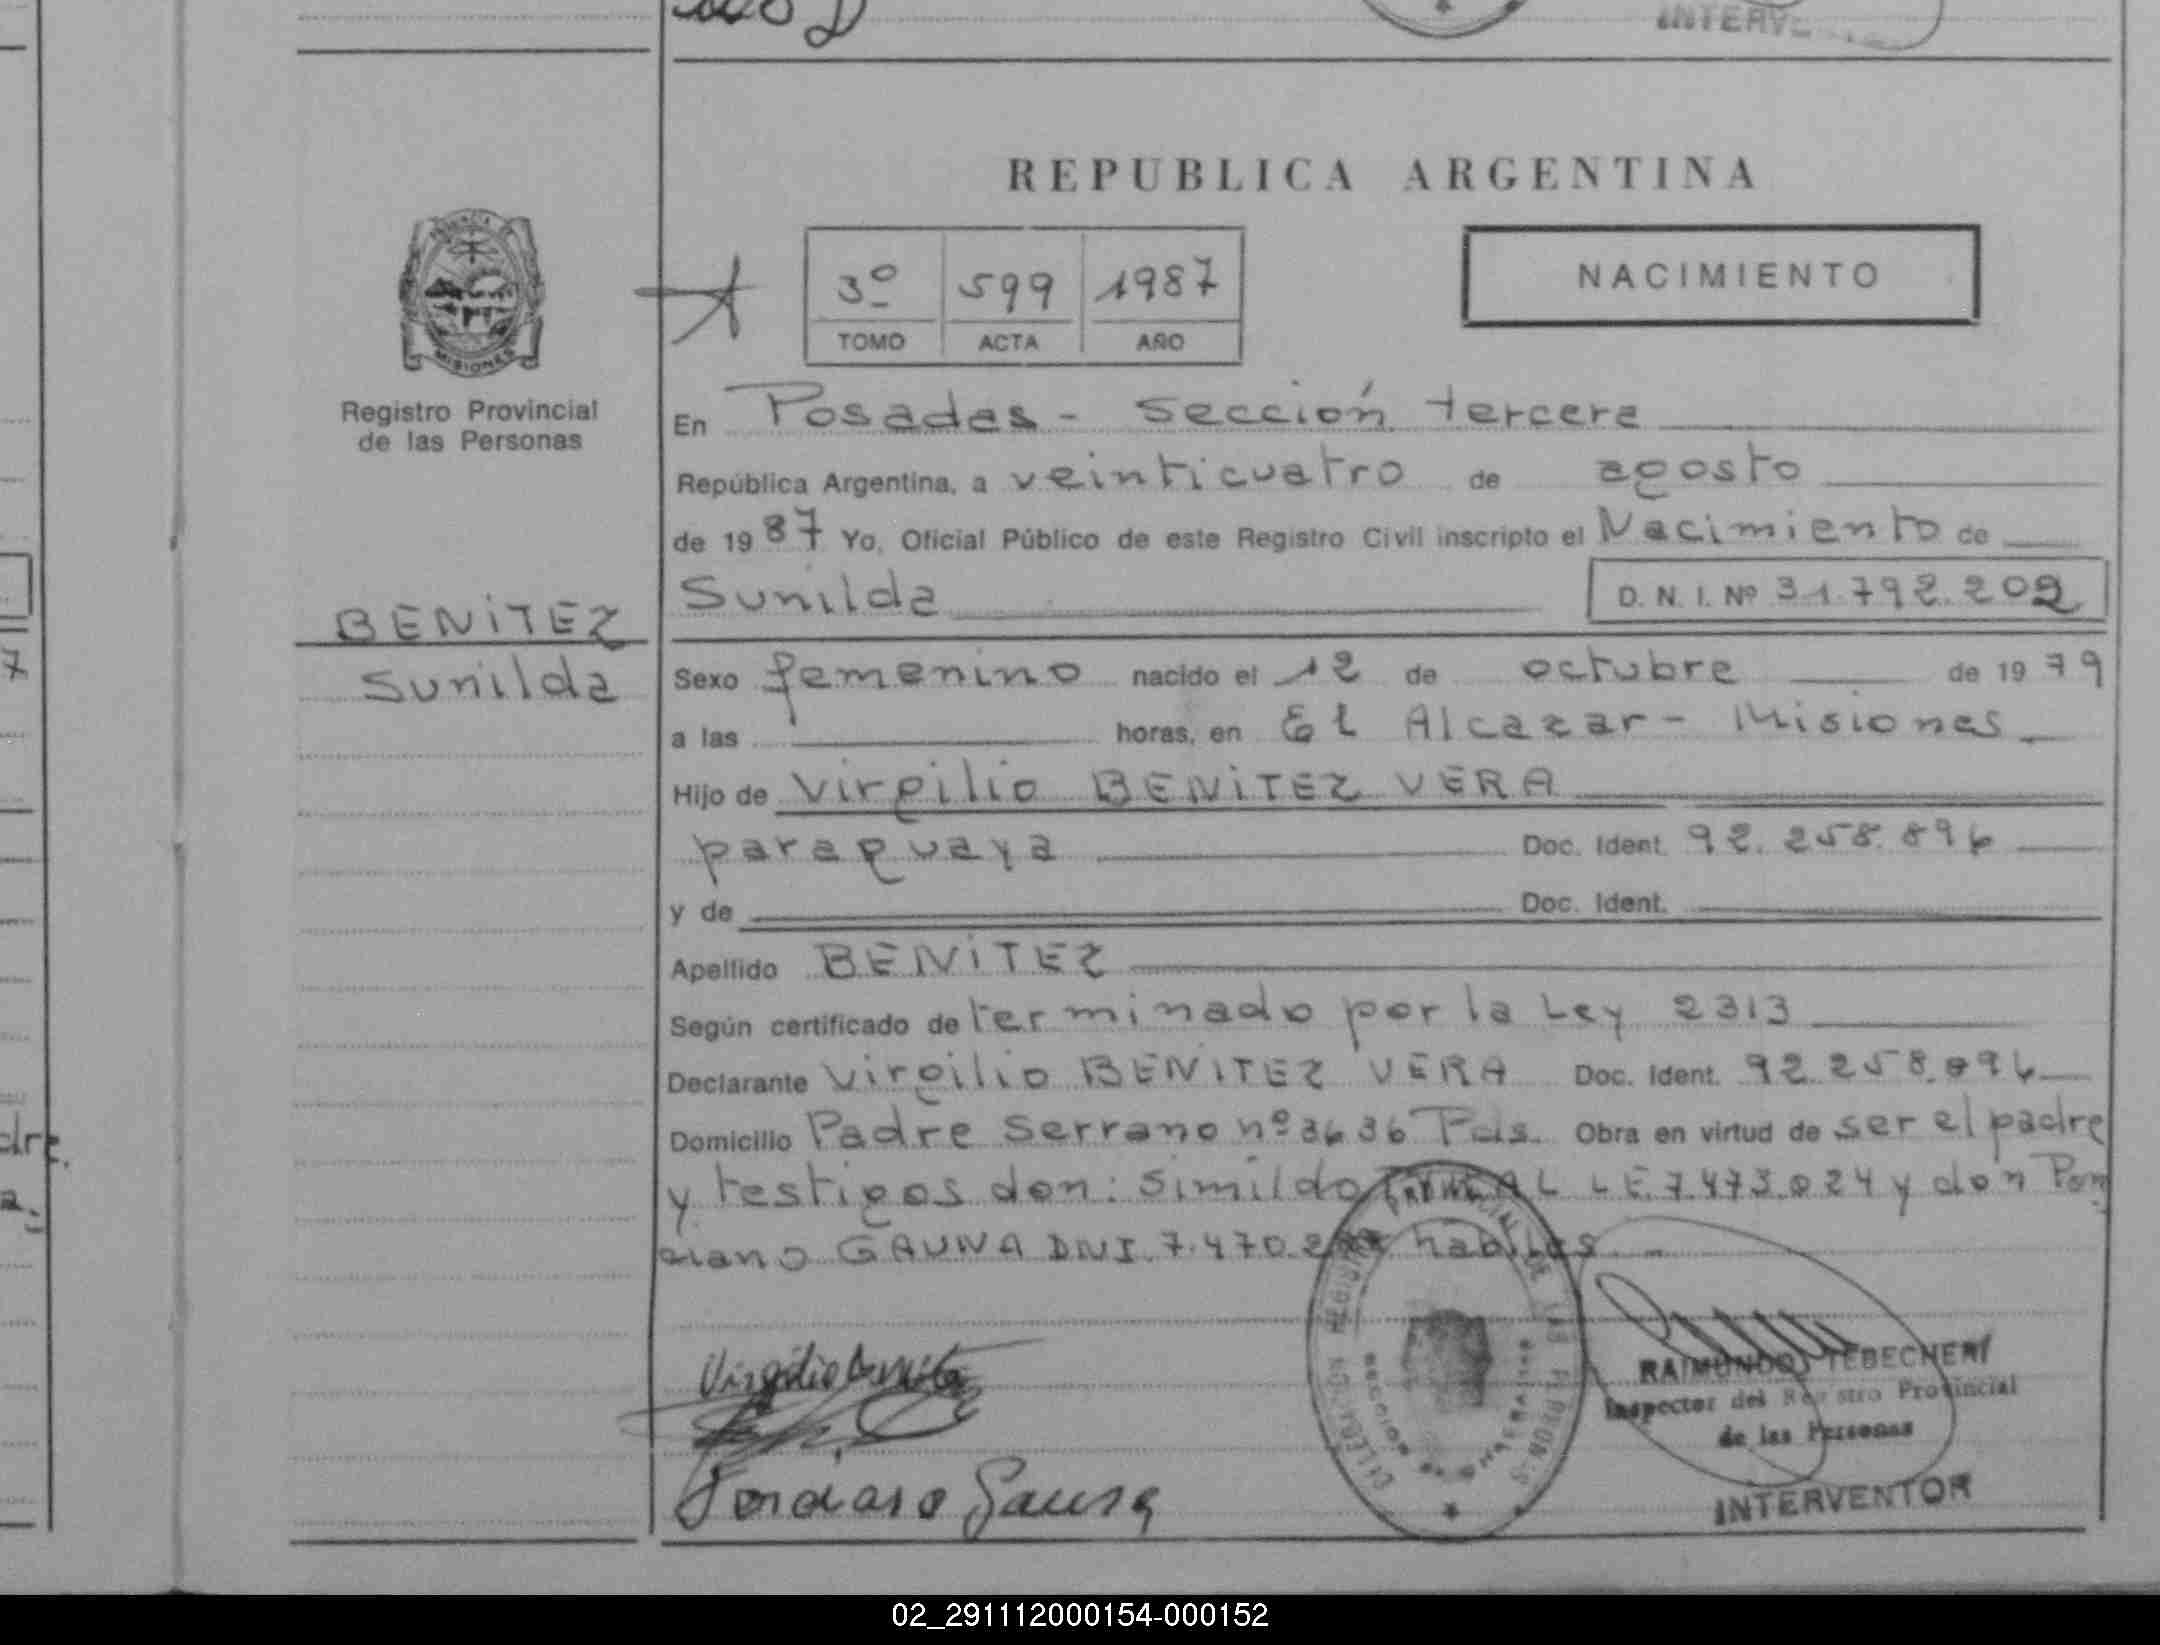 INTERV
REPUBLICA ARGENTINA
MISIONES
Registro Provincial
de las Personas
3º 599 1987
TOMO ACTA AÑO
NACIMIENTO
En Posadas - Sección tercera
República Argentina, a veinticuatro de agosto
de 1987 Yo, Oficial Público de este Registro Civil inscripto el Nacimiento de
Sunilda D. N. I. Nº 31.792.202
BENiTEZ
Sunilda
Sexo femenino nacido el 12 de octubre de 1979
a las horas, en El Alcazar - Misiones
Hijo de Virgilio BENiTEZ VERA
paraguaya Doc. Ident. 92.258.896
y de Doc. Ident.
Apellido BENiTEZ
Según certificado de terminado por la Ley 2313
Declarante Virgilio BENiTEZ VERA Doc. Ident. 92.258.896
Domicilio Padre Serrano nº 3636 Pds. Obra en virtud de ser el padre
y testigos don: Simildo LE 7.473.024 y don Pon
ciano GAUNA DNI 7.470. habiles
Virgilio Benitez
Ponciano Gauna
RAIMUNDO TEBECHERI
Inspector del Registro Provincial
de las Personas
INTERVENTOR
7
dre.
a.
02_291112000154-000152